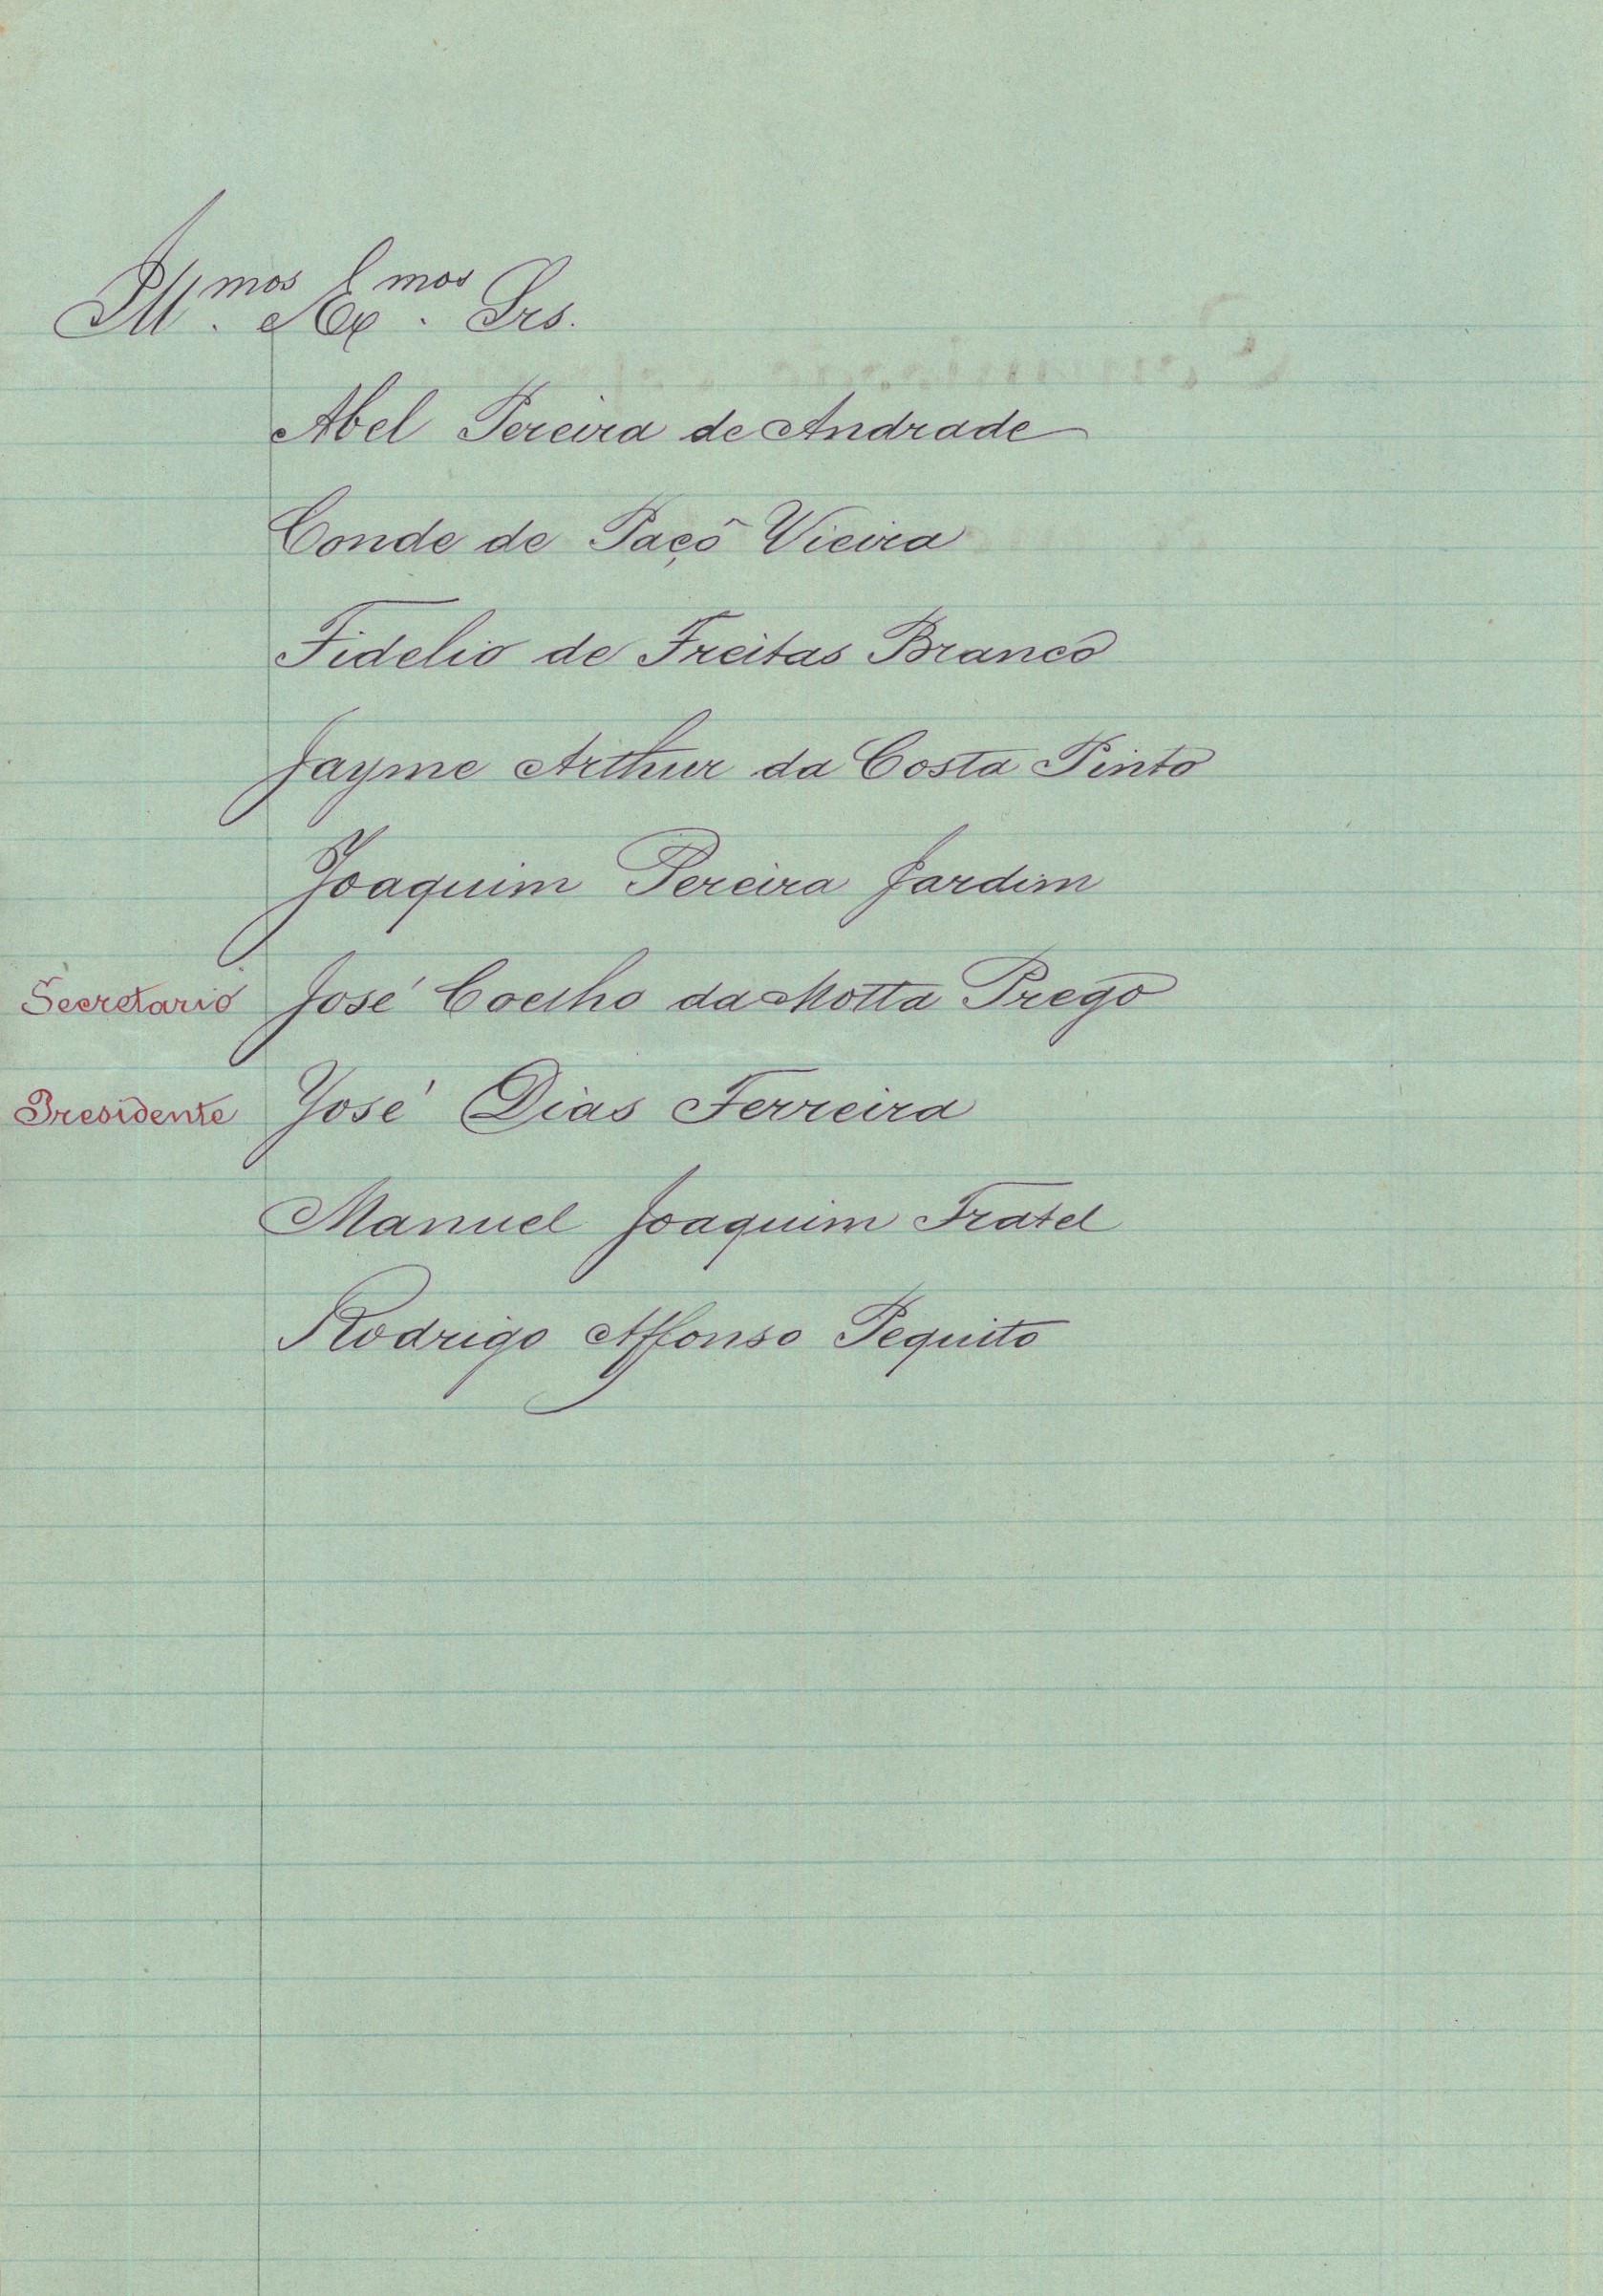 Ill.mos e Ex.mos Srs.
Abel Pereira de Andrade
Conde de Paçô Vieira
Fidelio de Freitas Branco
Jayme Arthur da Costa Pinto
Joaquim Pereira Jardim
Secretario José Coelho da Motta Prego
Presidente José Dias Ferreira
Manuel Joaquim Fratel
Rodrigo Affonso Pequito